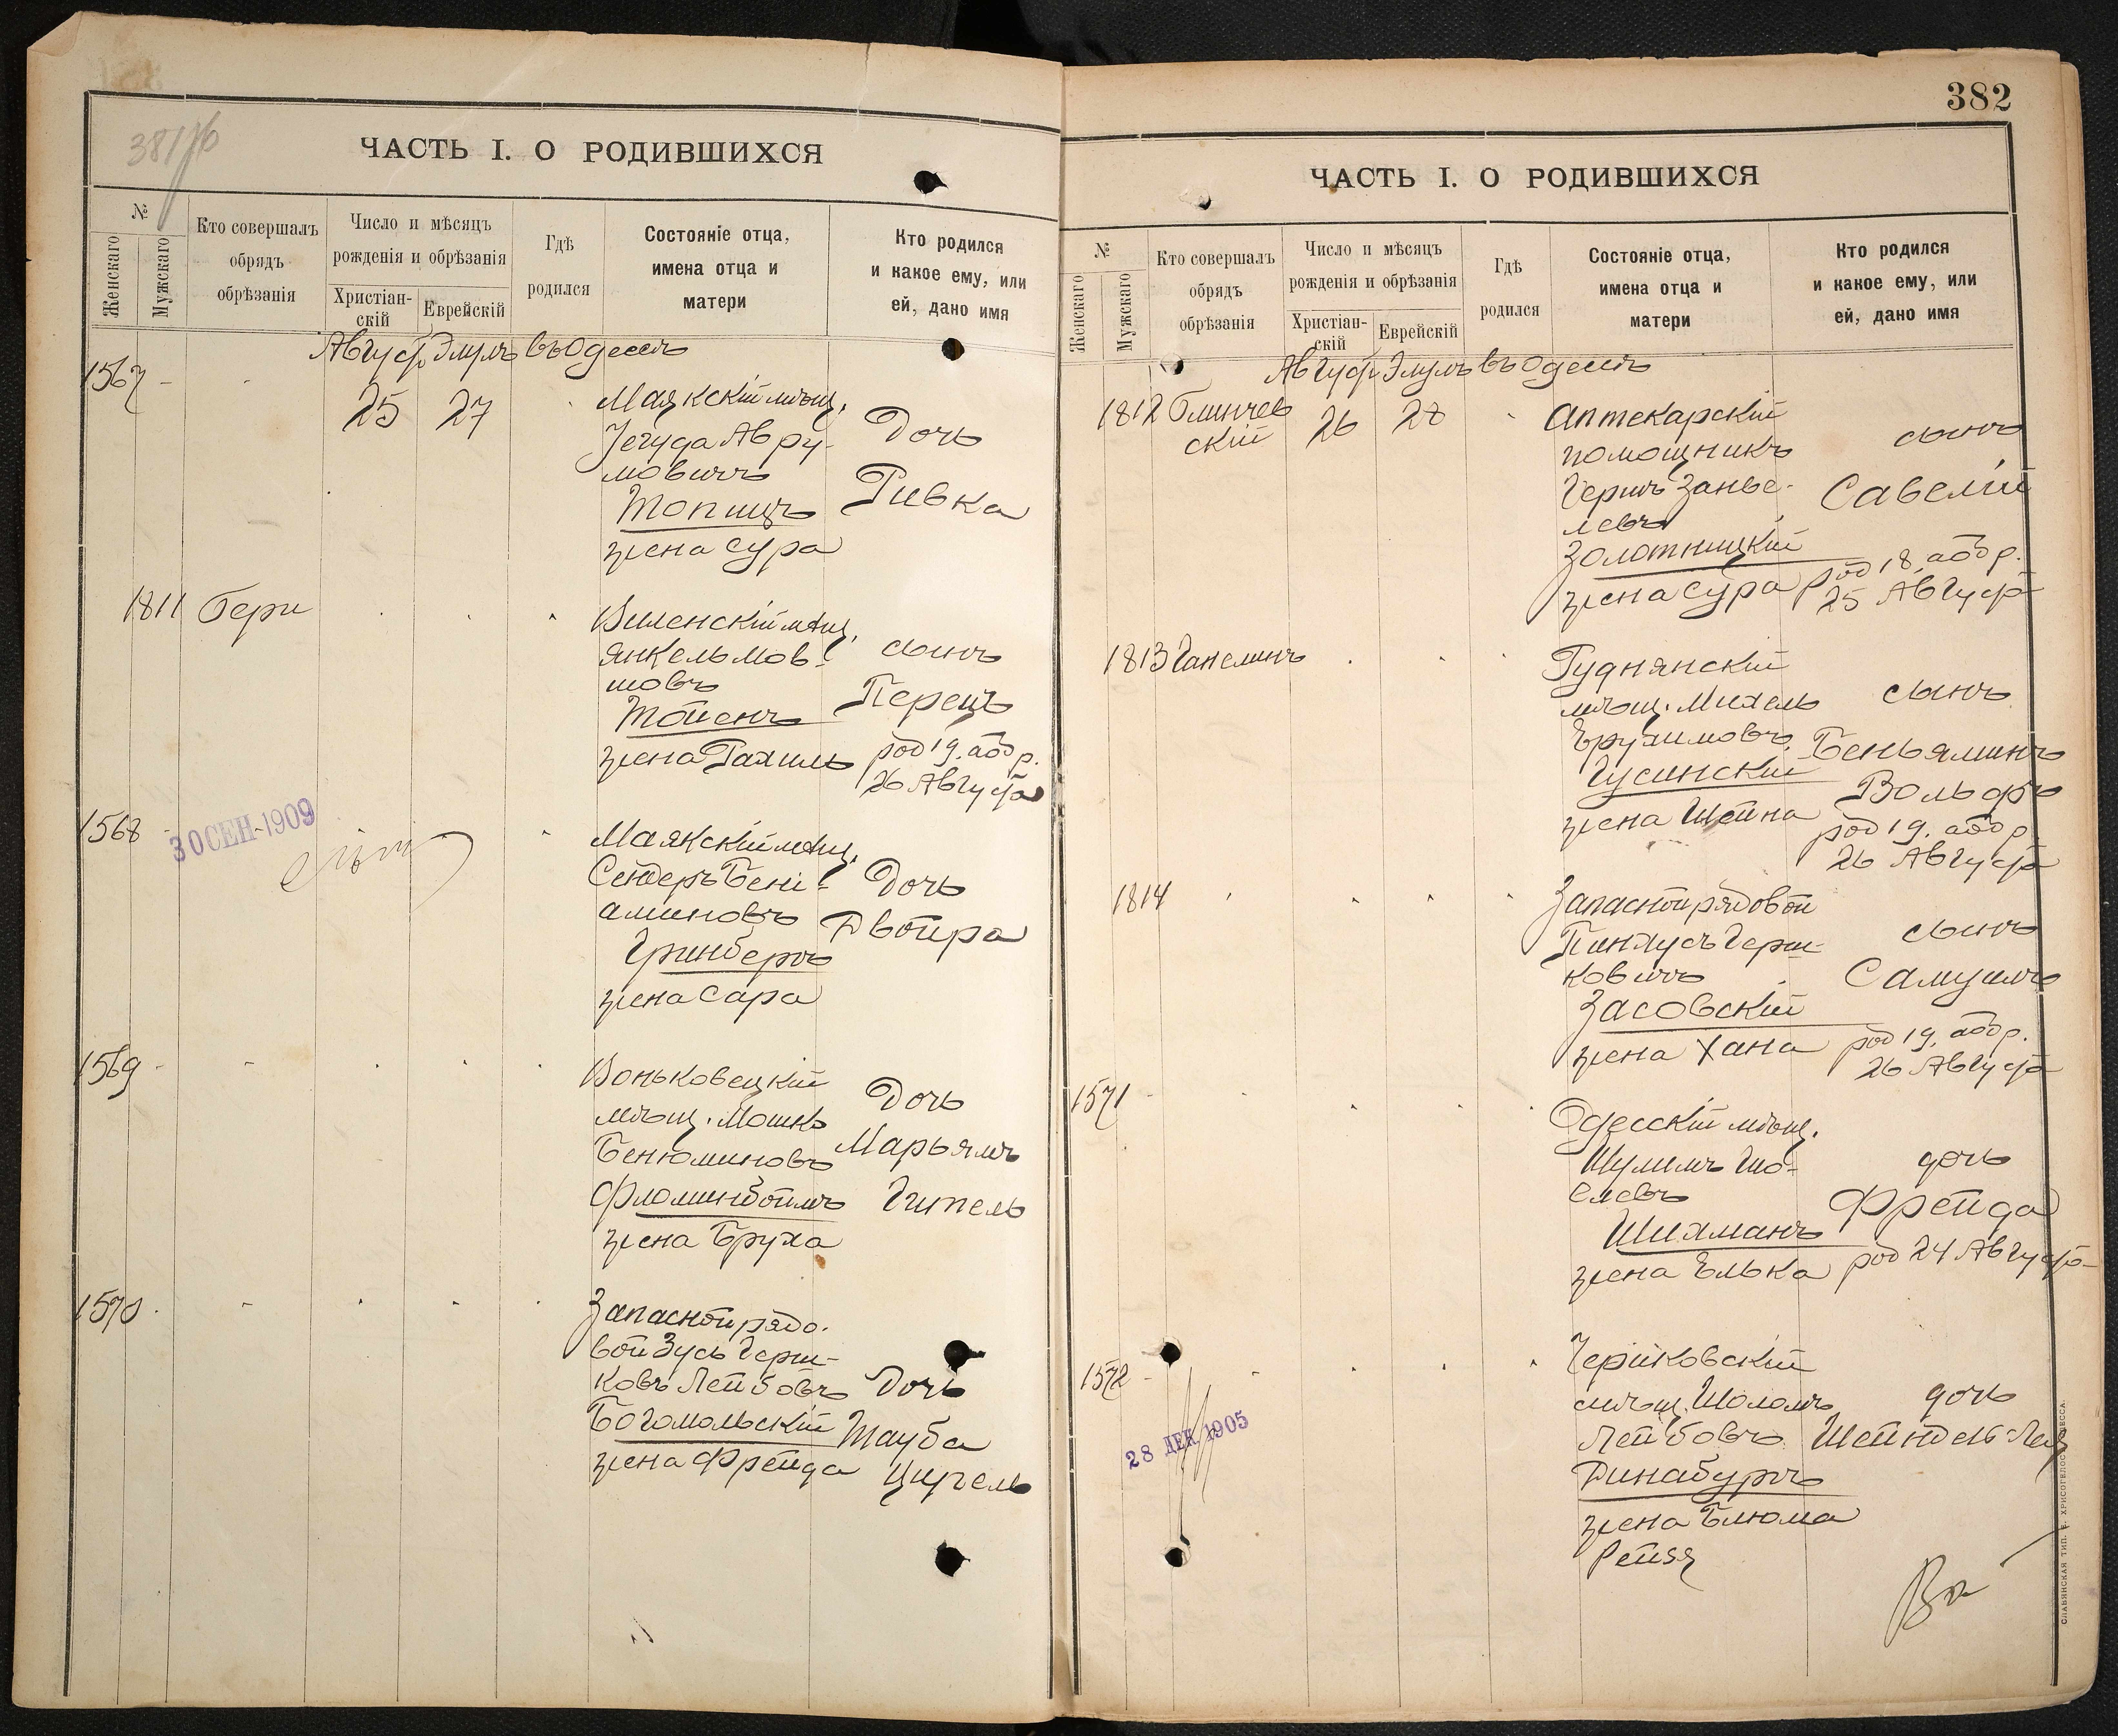 ЧАСТЬ I. О РОДИВШИХСЯ
№
Женскаго
Мужскаго
Кто совершалъ
обрядъ
обрѣзанія
Число и мѣсяцъ
рожденія и обрѣзанія
Христіан-
скій
Еврейскій
Гдѣ
родился
Состояніе отца,
имена отца и
матери
Кто родился
и какое ему, или
ей, дано имя
Август Элулъ въ Одессѣ
1567
25
27
Маякскій мѣщ.
Іегуда Авру-
мовичъ
Топицъ
жена Сура
Дочь
Ривка
1811
Гери
Виленскій мѣщ.
Янкель Мов-
шовъ
Тойенъ
жена Рахиль
сынъ
Перецъ
род 19. абр.
26 Августа
1568
30 СЕН 1909
Маякскій мѣщ.
Сендеръ Бені-
аминовъ
Гринбергъ
жена Сара
Дочь
Двойра
1569
Воньковецкій
мѣщ. Мошко
Бенюминовъ
Фломинбоймъ
жена Бруха
Дочь
Марьямъ
Гитель
1570
Запасной рядо-
вой Зусь Герш-
ковъ Лейбовъ
Богомольскій
жена Фрейда
Дочь
Тауба
Цирель
382
ЧАСТЬ I. О РОДИВШИХСЯ
№
Женскаго
Мужскаго
Кто совершалъ
обрядъ
обрѣзанія
Число и мѣсяцъ
рожденія и обрѣзанія
Христіан-
скій
Еврейскій
Гдѣ
родился
Состояніе отца,
имена отца и
матери
Кто родился
и какое ему, или
ей, дано имя
Август Элулъ въ Одессѣ
1812
Глинчев
скій
26
28
Аптекарскій
помощникъ
Гершъ Занве-
левъ
Золотницкій
жена Сура
сынъ
Савелій
род 18, абр.
25 Августа
1813
Ганелинъ
Руднянскій
мѣщ. Михель
Ѣрухимовъ
Гусинскій
жена Шейна
сынъ
Беньяминъ
Вольфъ
род 19. абр.
26 Августа
1814
Запасной рядовой
Пинхусъ Герш-
ковичъ
Засовскій
жена Хана
сынъ
Самуилъ
род 19. абр.
26 Августа
1571
Одесскій мѣщ.
Шулимъ Шо-
елевъ
Шихманъ
жена Элька
дочь
Фрейда
род 24 Августа
1572
28 ДЕК 1905
Чериковскій
мѣщ. Шоломъ
Лейбовъ
Динабургъ
жена Блюма
Рейзя
дочь
Шейндель-Лея
СЛАВЯНСКАЯ ТИП. Е. ХРИСОГЕЛОСЪ ОДЕССА.